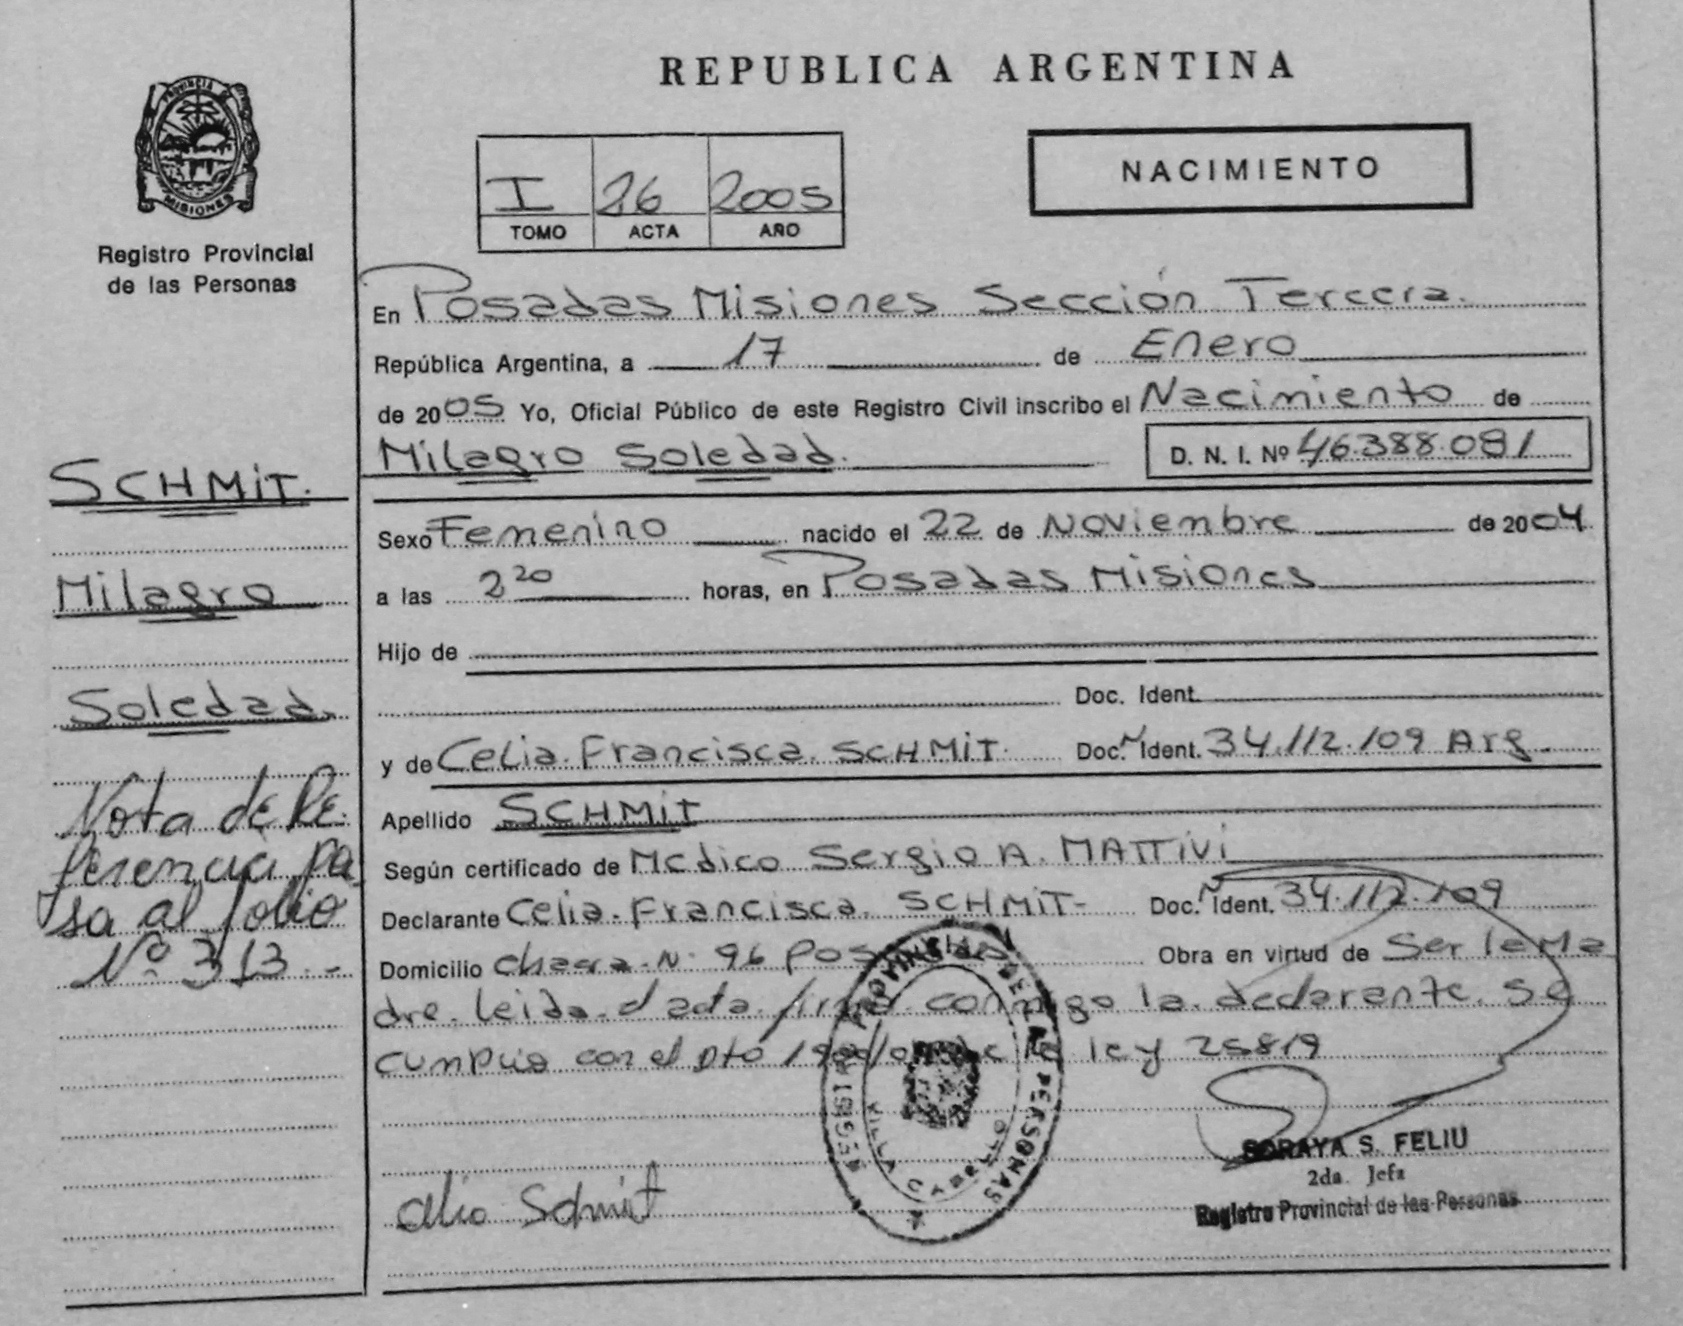 PROVINCIA DE
MISIONES
Registro Provincial
de las Personas
SCHMIT.
Milagro
Soledad.
Nota de Re
ferencia pa
sa al folio
Nº 313.-
REPUBLICA ARGENTINA
I 26 2005
TOMO ACTA AÑO
NACIMIENTO
En Posadas Misiones Sección Tercera.
República Argentina, a 17 de Enero
de 2005 Yo, Oficial Público de este Registro Civil inscribo el Nacimiento de
Milagro Soledad. D. N. I. Nº 46.388.081
Sexo Femenino nacido el 22 de Noviembre de 2004
a las 2 20 horas, en Posadas Misiones
Hijo de
Doc. Ident.
y de Celia Francisca SCHMIT. Doc. N Ident. 34.112.109 Arg.
Apellido SCHMIT
Según certificado de Medico Sergio A. MATTIVI
Declarante Celia Francisca SCHMIT- Doc. N Ident. 34.112.109
Domicilio chacra N. 96 Obra en virtud de Ser la Ma
dre. leida el acta firma conmigo la declarante. Se
cumplio con el Dto la ley 25819
VILLA CABELLO
PERSONAS
SORAYA S. FELIU
2da. Jefa
Registro Provincial de las Personas
Schmit